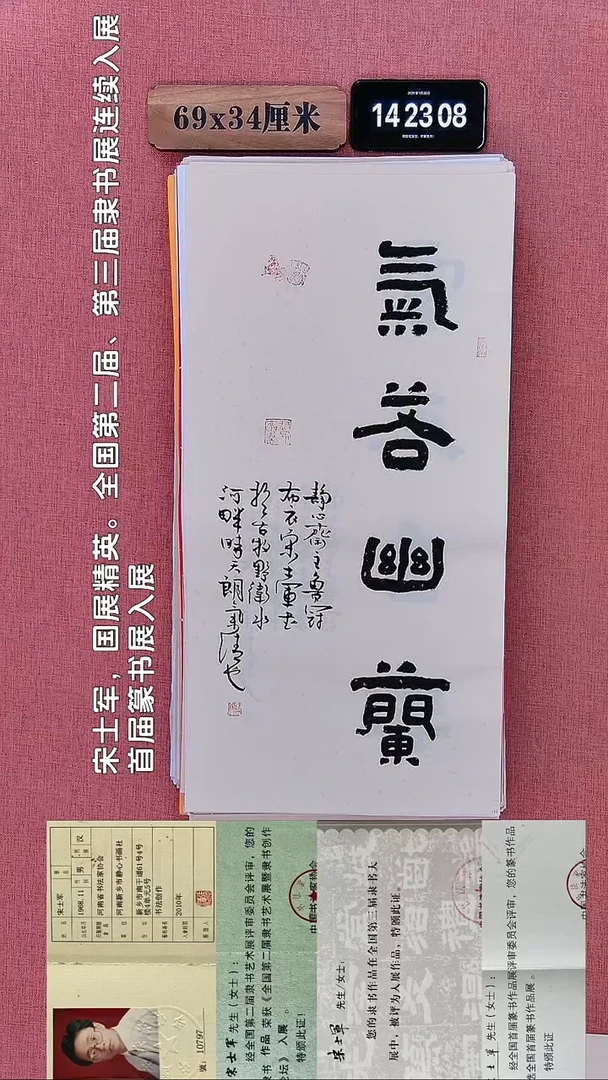 宋士军，国展精英。全国第二届、第三届隶书展连续入展
首届篆书展入展
69x34厘米
14 23 08
氣若幽蘭
静心齋主魯冠
布衣宋士軍書
於古牧野衛水
河畔時天朗氣清也
宋士军
1968.11
男
汉
河南省书法家协会
河南新乡市静心书画社
新乡市南干道61号4号
楼4单元3号
书法创作
2010年
號：10797
宋士军 先生（女士）：
经全国第二届隶书艺术展评审委员会评审，您的
隶书 作品 荣获《全国第二届隶书艺术展暨隶书创作
论坛》 入展 。
特颁此证！
宋士军 先生/女士：
您的隶书作品在全国第三届隶书大
展中，被评为入展作品，特颁此证。
士军 先生（女士）：
经全国首届篆书作品展评审委员会评审，您的篆书作品
全国首届篆书作品展。
特颁此证